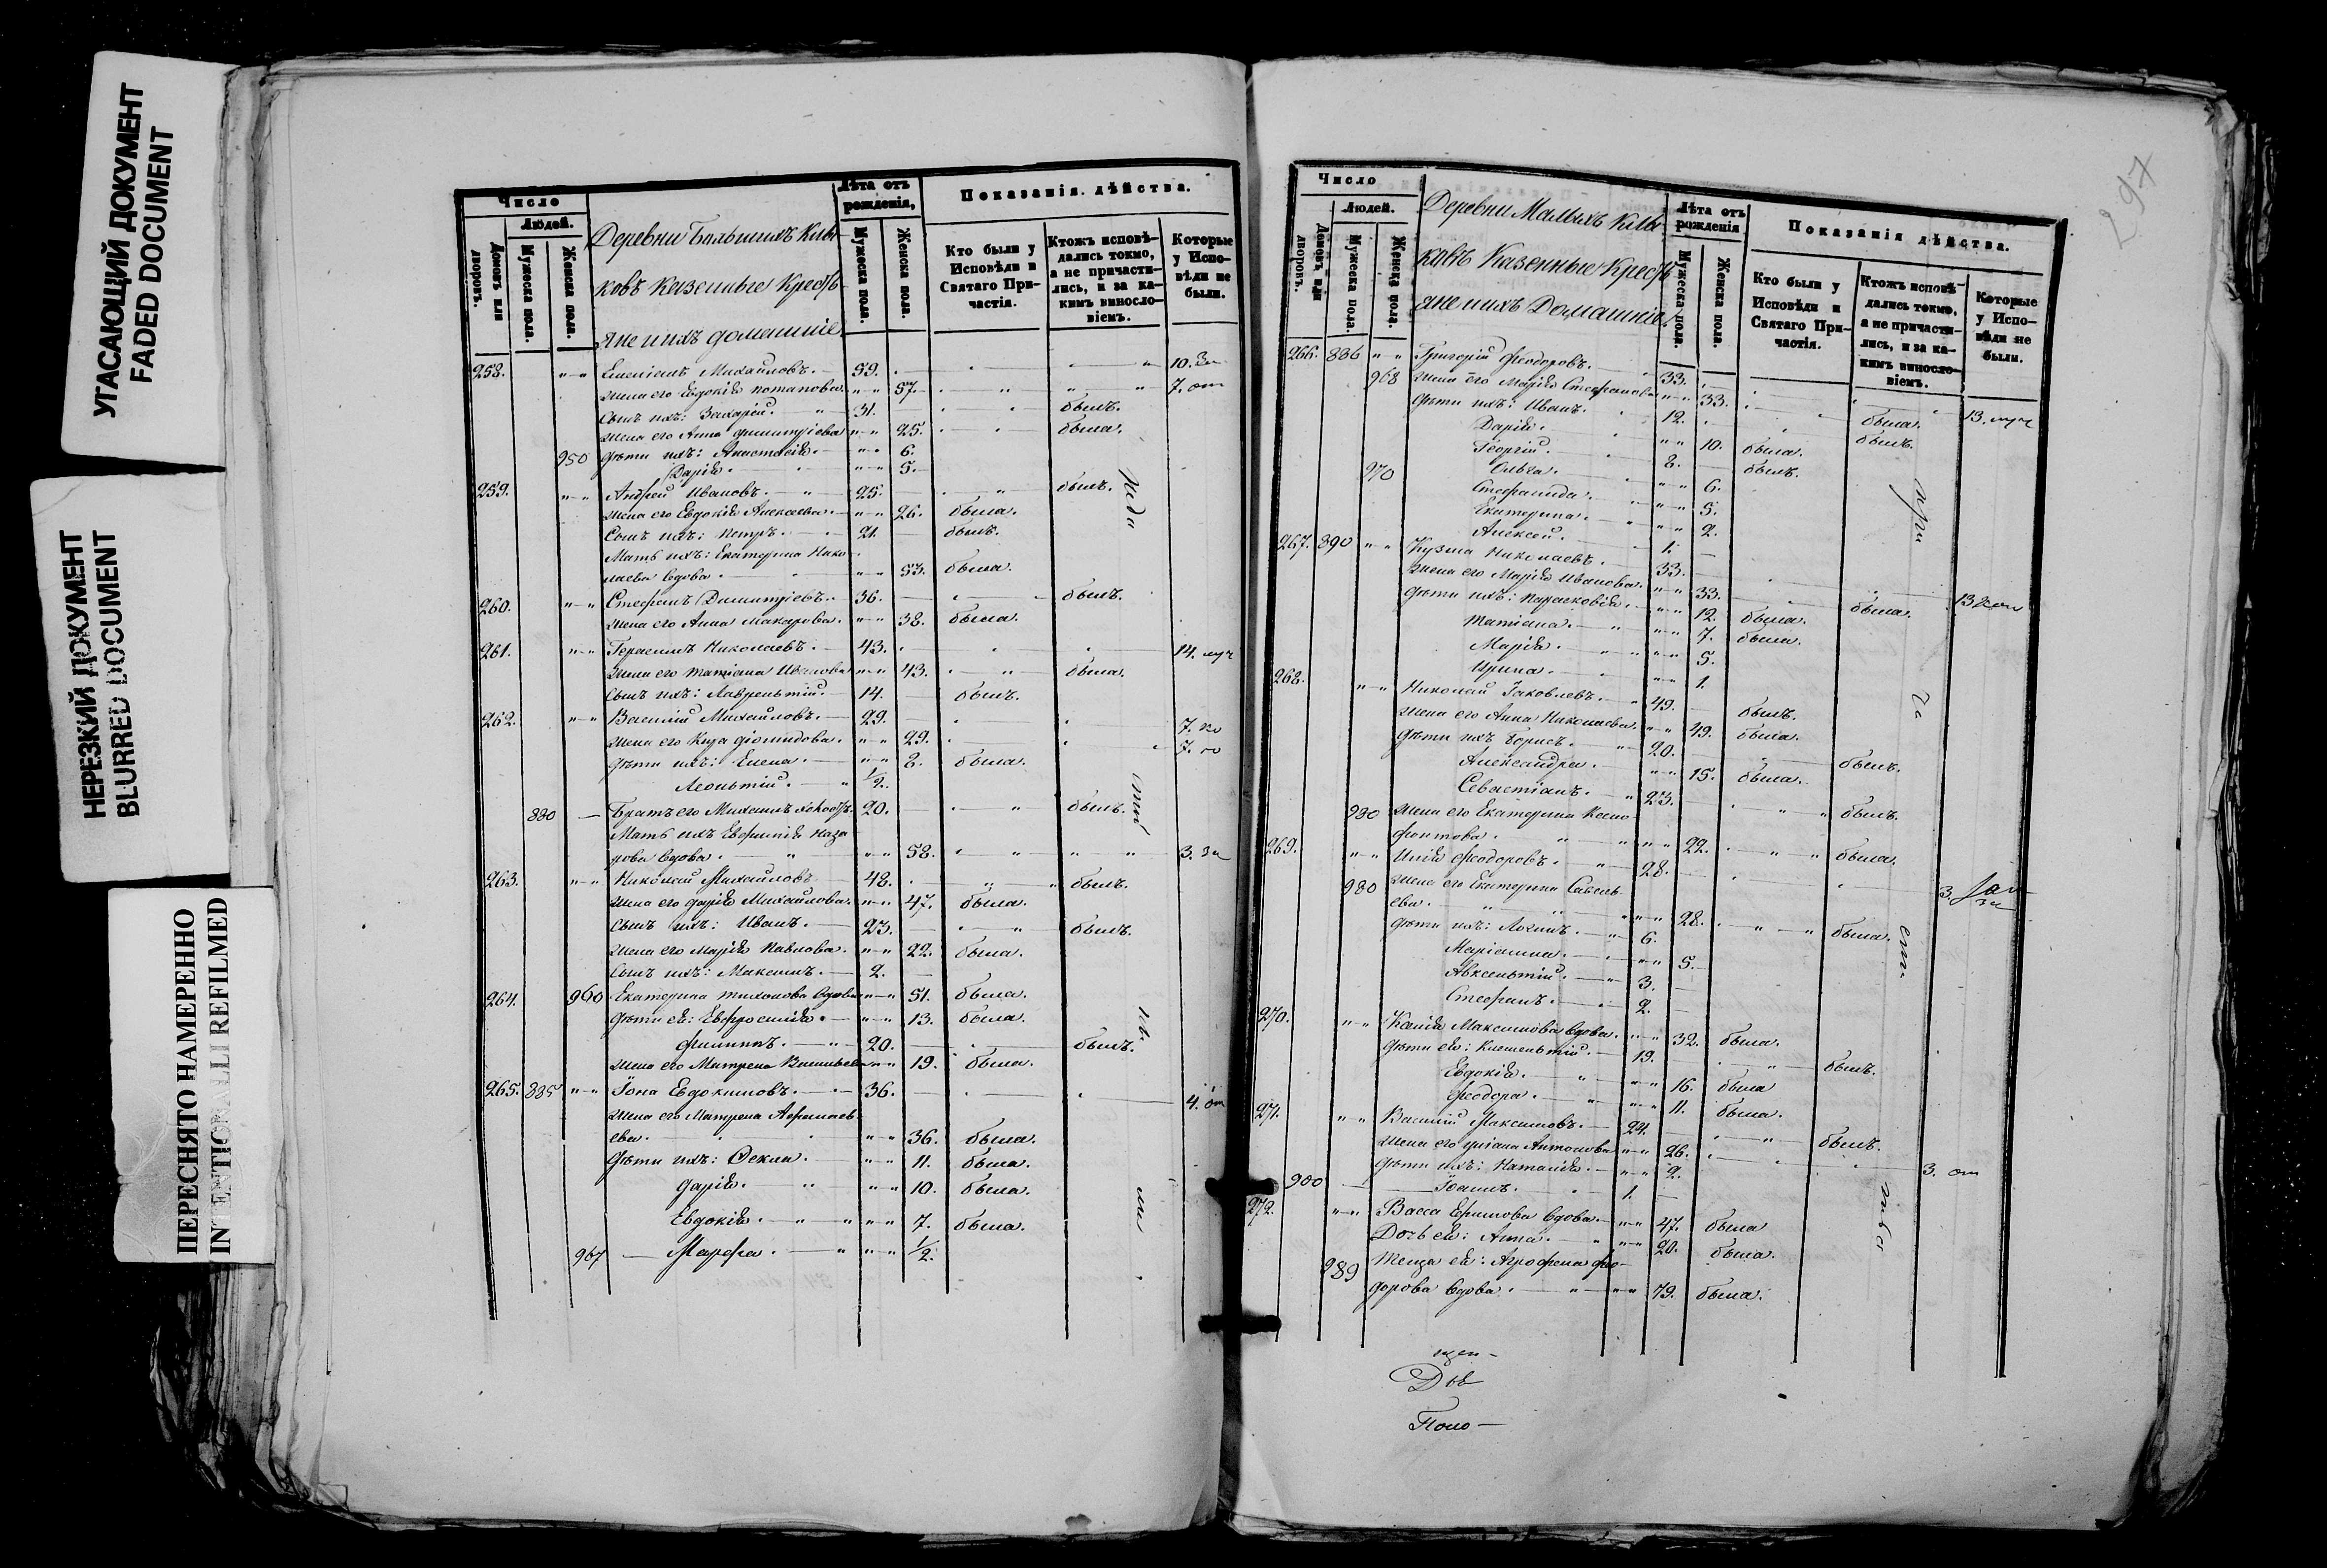 УГАСАЮЩИЙ ДОКУМЕНТ
FADED DOCUMENT
НЕРЕЗКИЙ ДОКУМЕНТ
BLURRED DOCUMENT
ПЕРЕСНЯТО НАМЕРЕННО
INTENTIONALLI REFILMED
Число
Людей.
Домовъ или дворовъ.
Мужеска пола.
Женска пола.
Деревни Большихъ Клы-
ковъ Казенные Кресть-
яне и ихъ домашніе
Лѣта отъ рожденія,
Мужеска пола.
Женска пола.
Показанія дѣйства.
Кто были у Исповѣди и Святаго Причастія.
Ктожъ исповѣдались токмо, а не причастились, и за какимъ винословіемъ.
Которые у Исповѣди не были.
258. Михайловъ. 59. 10.
жена его Евдокія Потапова. 57. 7. от
Сынъ ихъ: Захарій. 31. былъ.
жена его Анна Димитріева 25. была.
950 Дѣти ихъ: Анастасія. 6.
Дарія. 5.
259. Андрей Ивановъ. 25. былъ.
жена его Евдокія Алексеева. 26. была.
Сынъ ихъ: Петръ. 21. былъ.
Мать ихъ: Екатерина Нико-
лаева вдова. 53. была.
260. Стефанъ Димитріевъ. 36. былъ.
жена его Анна Макарова. 38. была.
261. Герасимъ Николаевъ. 43. 14.
жена его Татіана Иванова 43. была.
Сынъ ихъ: Лаврентій. 14. былъ.
262. Василій Михайловъ. 29. 7.
жена его 29. 7.
Дѣти ихъ: Елена. 2. была.
Леонтій. 1/2.
880 Братъ его Михаилъ холостъ. 20. былъ.
Мать ихъ Евфимія Наза-
рова вдова. 58. 3.
263. Николай Михайловъ 48. былъ.
жена его Дарія Михайлова. 47. была.
Сынъ ихъ: Иванъ. 23. былъ.
жена его Марія Павлова. 22. была.
Сынъ ихъ: Максимъ. 2.
264. 960 Екатерина Тихонова вдова 51. была.
Дѣти ея: Евфросинія. 13. была.
Филиппъ. 20. былъ.
жена его Матрена Васильева 19. была.
265. 885 Іона Евдокимовъ. 36. 4. от
жена его Матрена Афанась-
ева. 36. была.
Дѣти ихъ: Ѳекла. 11. была.
Дарія. 10. была.
Евдокія. 7. была.
967 Марфа. 1/2.
297
Число
Людей.
Домовъ или дворовъ.
Мужеска пола.
Женска пола.
Деревни Малыхъ Клы-
ковъ Казенные Кресть-
яне и ихъ Домашніе
Лѣта отъ рожденія
Мужеска пола.
Женска пола.
Показанія дѣйства.
Кто были у Исповѣди и Святаго Причастія.
Ктожъ исповѣдались токмо, а не причастились, и за какимъ винословіемъ.
Которые у Исповѣди не были.
266. 886 Григорій Феодоровъ. 33. 13.
968 жена его Марія Стефанова 33. была.
Дѣти ихъ: Иванъ. 12. былъ.
Дарія. 10. была.
Георгій. 8. былъ.
970 Ольга. 6.
Стефанида. 5.
Екатерина. 2.
Алексей. 1.
267. 890 Кузма Николаевъ. 33. 13
жена его Марія Иванова. 33. была.
Дѣти ихъ: Парасковія. 12. была.
Татіана. 7. была.
Марія. 5.
Ирина. 1.
268. Николай Іаковлевъ. 49. былъ.
жена его Анна Николаева. 49. была.
Дѣти ихъ Борисъ. 20. былъ.
Александра. 15. была.
Севастіанъ. 23. былъ.
980 жена его Екатерина Ксено-
фонтова. 22. была.
269. Илія Феодоровъ. 28. 3.
980 жена его Екатерина Савель-
ева. 28. была.
Дѣти ихъ: Логинъ. 6.
Маріанна. 5.
Авксентій. 3.
Стефанъ. 2.
270. Максимова вдова. 32. была.
Дѣти ея: Климентій. 19. былъ.
Евдокія. 16. была
Феодора. 11. была.
271. Василій Максимовъ. 24. былъ.
жена его Антонова 26. 3. от
Дѣти ихъ: Наталія. 2.
900 Іоаннъ. 1.
272. Васса Ефимова вдова. 47. была
Дочь ея: Анна. 20. была.
989 Теща ея: Агрофена Фео-
дорова вдова. 79. была.